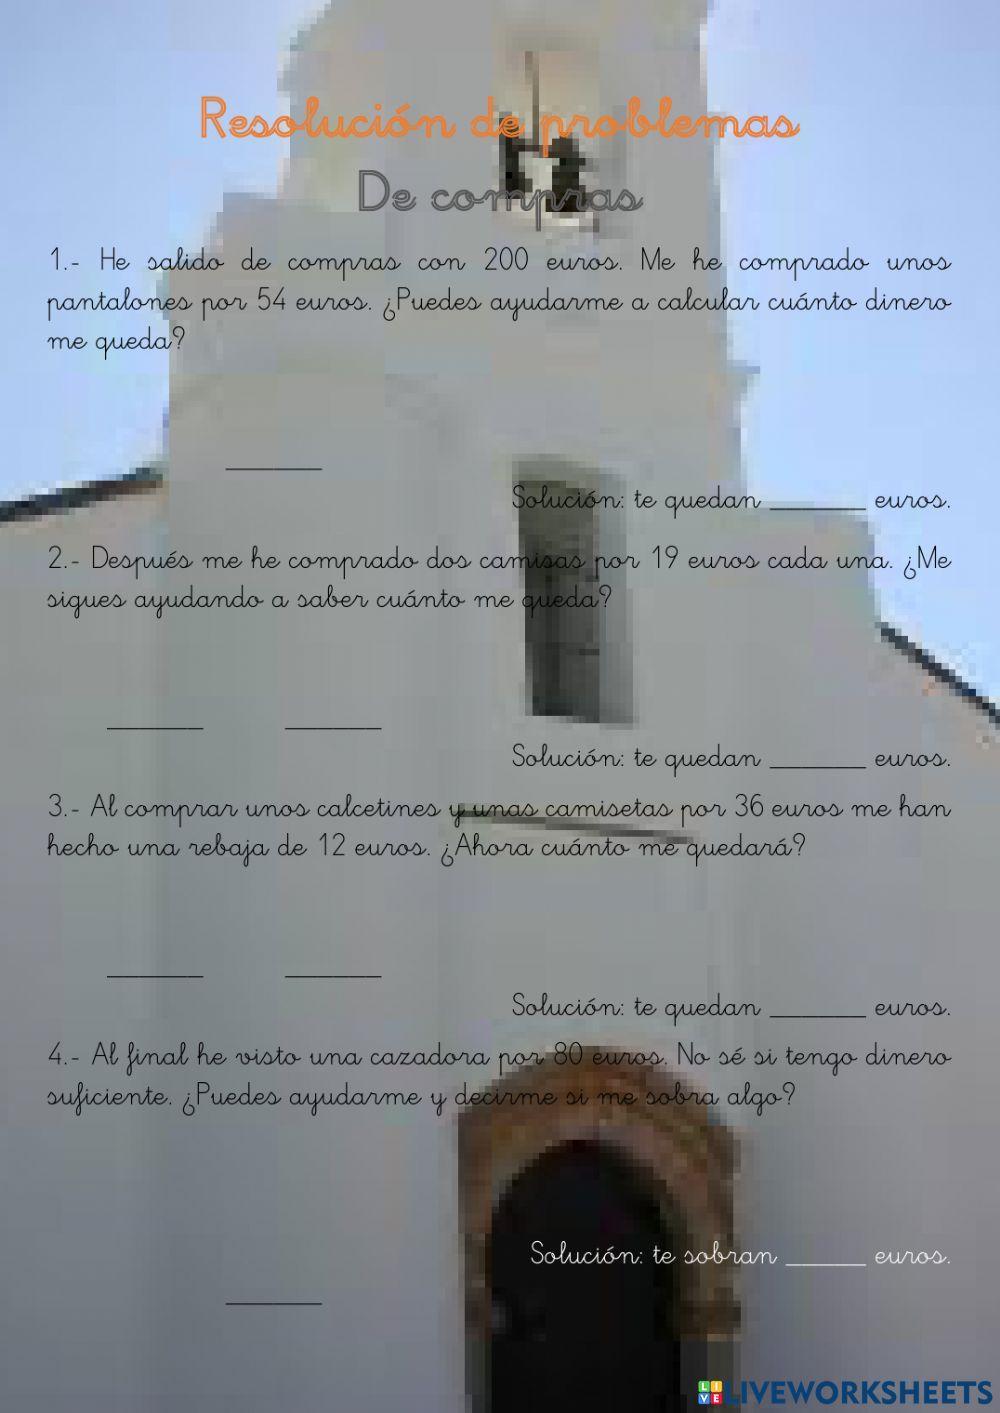 Resolución de problemas
De compras
1.- He salido de compras con 200 euros. Me he comprado unos
pantalones por 54 euros. ¿Puedes ayudarme a calcular cuánto dinero
me queda?
______
Solución: te quedan ______ euros.
2.- Después me he comprado dos camisas por 19 euros cada una. ¿Me
sigues ayudando a saber cuánto me queda?
______ ______
Solución: te quedan ______ euros.
3.- Al comprar unos calcetines y unas camisetas por 36 euros me han
hecho una rebaja de 12 euros. ¿Ahora cuánto me quedará?
______ ______
Solución: te quedan ______ euros.
4.- Al final he visto una cazadora por 80 euros. No sé si tengo dinero
suficiente. ¿Puedes ayudarme y decirme si me sobra algo?
Solución: te sobran _____ euros.
______
LIVEWORKSHEETS